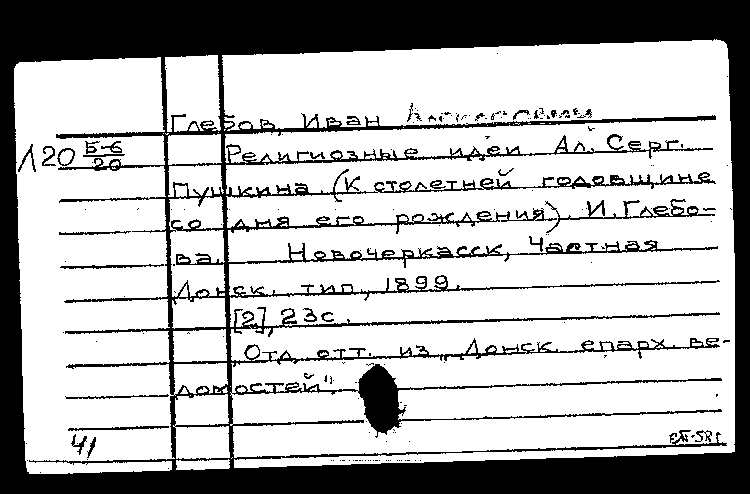 Глебов, Иван Алексеевич
Л20 Б-6/20
Религиозные идеи Ал. Серг.
Пушкина. (К столетней годовщине
со дня его рождения). И. Глебо-
ва. Новочеркасск, Частная
Донск. тип., 1899.
[2], 23с.
„Отд. отт. из „Донск. епарх. ве-
домостей".
41